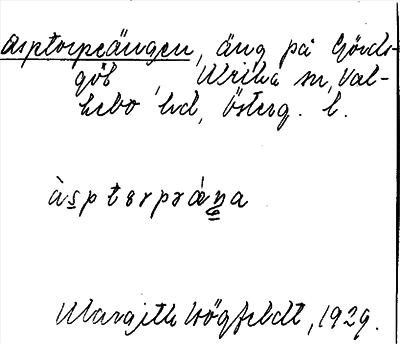 Asptorpeängen, äng på Gjords-
göl, Ulrika sn, Val-
kebo hd, Österg. l.
àsptərpráŋa
Margith Högfeldt, 1929.